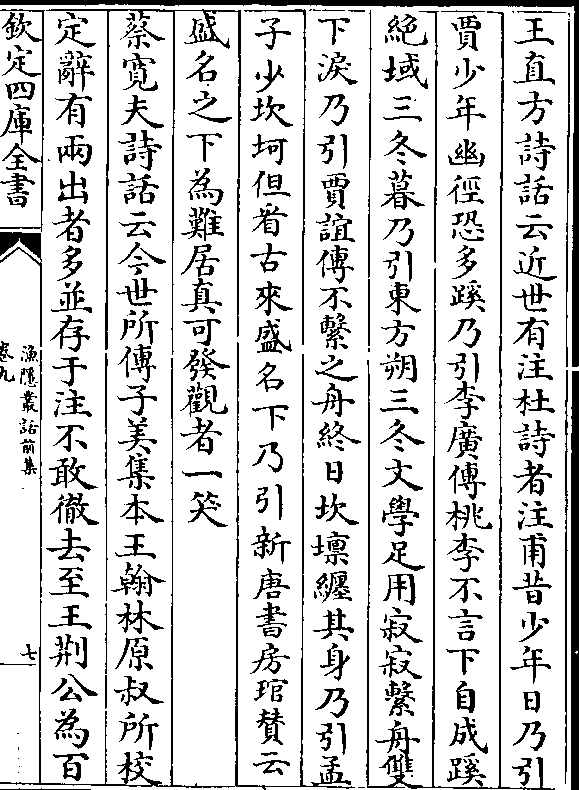 王直方詩話云近世有注杜詩者注甫昔少年日乃引
賈少年幽徑恐多蹊乃引李廣傳桃李不言下自成蹊
絶域三冬暮乃引東方朔三冬文學足用寂寂繫舟雙
下淚乃引賈誼傳不繫之舟終日坎壈纒其身乃引孟
子少坎坷但看古來盛名下乃引新唐書房琯賛云
盛名之下為難居真可發觀者一笑
蔡寛夫詩話云今世所傳子美集本王翰林原叔所校
定辭有兩出者多並存于注不敢徹去至王荆公為百
欽定四庫全書
漁隠叢話前集
卷九
七